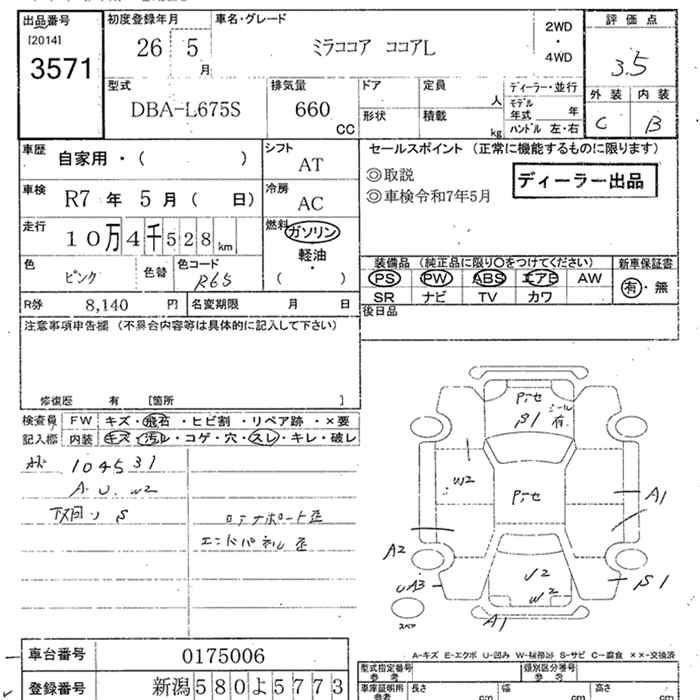 出品番号
[2014]
3571
初度登録年月
26 5
月
車名・グレード
ミラココア ココアL
2WD
・
4WD
評価点
3.5
外装 内装
C B
型式
DBA-L675S
排気量
660
CC
ドア
形状
定員
人
積載
kg
ディーラー・並行
モデル
年式 年
ハンドル 左・右
車歴
自家用・( )
シフト
AT
車検
R7 年 5 月 ( 日)
冷房
AC
走行
10万4千528km
燃料
ガソリン
軽油・
( )
色
ピンク
色替
色コード
R65
R券 8,140 円
名変期限 月 日
セールスポイント (正常に機能するものに限ります)
◎取説
◎車検令和7年5月
ディーラー出品
装備品 (純正品に限り○をつけてください)
PS PW ABS エアB AW
SR ナビ TV カワ
新車保証書
有・無
後日品
注意事項申告欄 (不具合内容等は具体的に記入して下さい)
修復歴 有 [箇所 ]
検査員
記入欄
FW キズ・飛石・ヒビ割・リペア跡・×要
内装 キズ・汚レ・コゲ・穴・スレ・キレ・破レ
104531
A U W2
下回り S
コアサポート歪
エンドパネル歪
Pite
S1
シール
有
W2
Pite
A1
A2
UA3
S1
U2
W2
A1
スペア
A-キズ E-エクボ U-凹み W-補修跡 S-サビ C-腐食 ××-交換済
車台番号 0175006
登録番号 新潟580よ5773
型式指定番号
参考
類別区分番号
参考
車庫証明用
参考
長さ cm
幅 cm
高さ cm